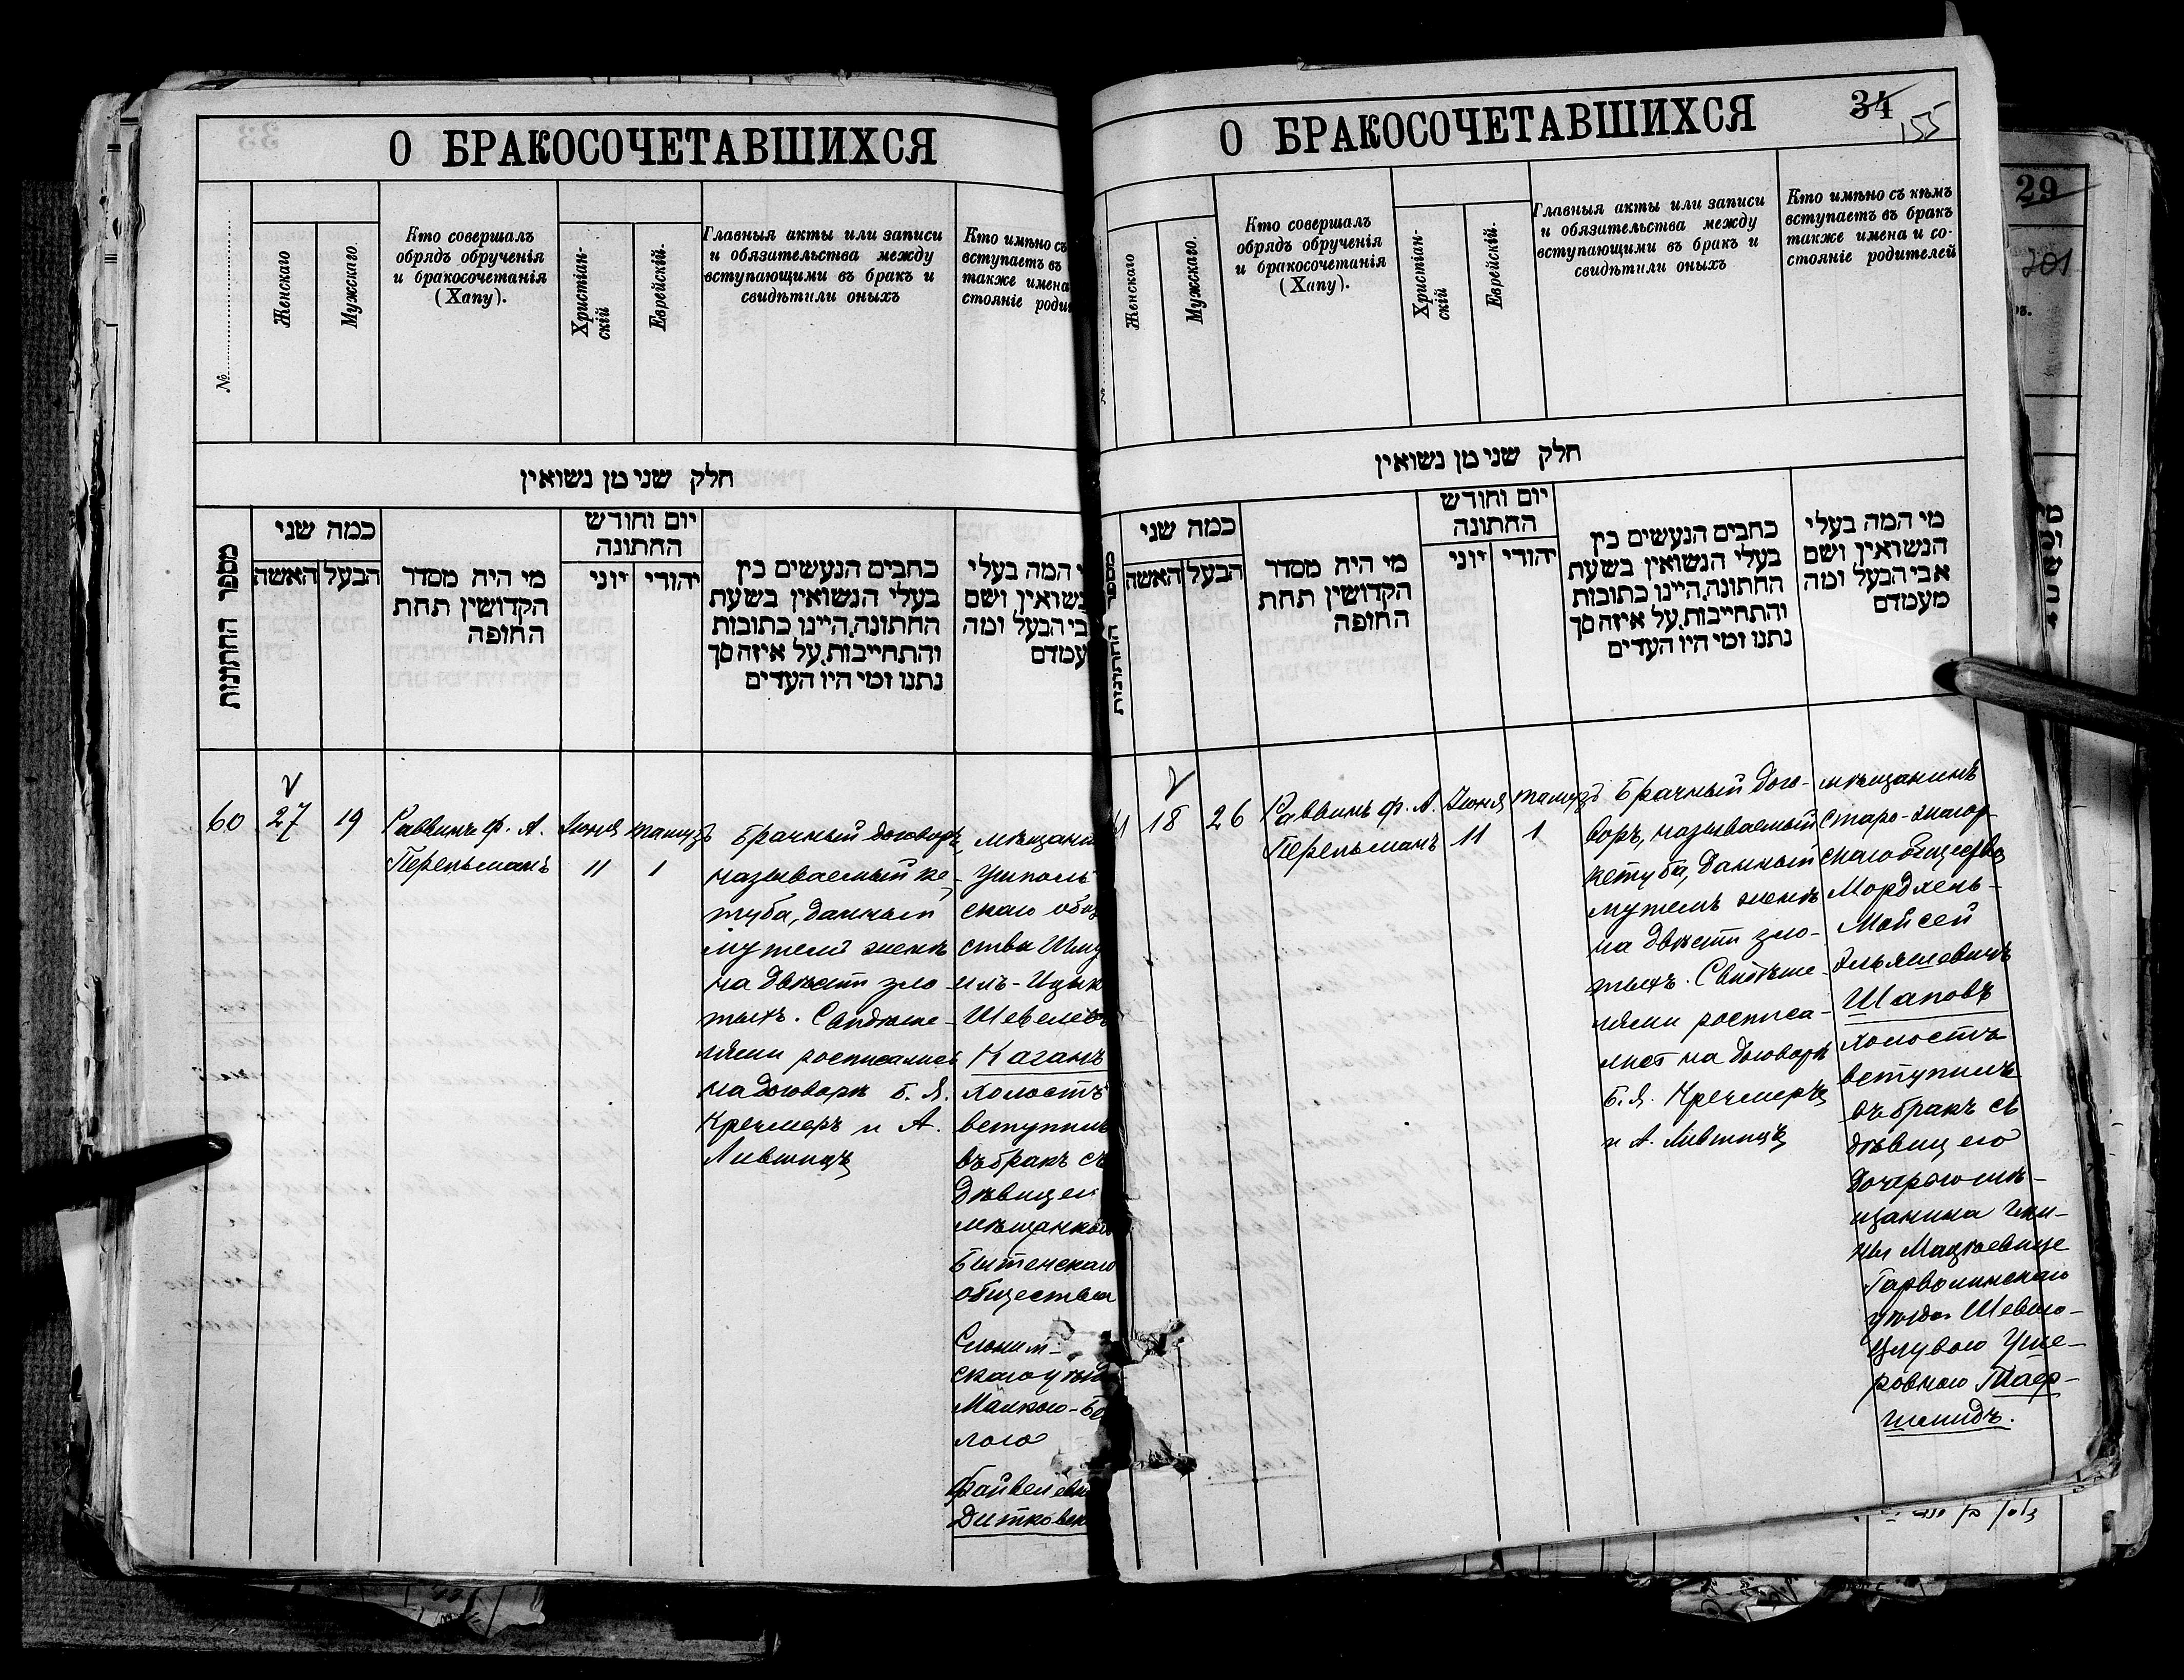 О БРАКОСОЧЕТАВШИХСЯ
№
Женскаго
Мужскаго
Кто совершалъ
обрядъ обрученія
и бракосочетанія
(Хапу).
Христіан-
скій
Еврейскій.
Главныя акты или записи
и обязательства между
вступающими въ бракъ и
свидѣтили оныхъ
Кто имѣно съ
вступаетъ въ
также имена
стояніе роди
חלק שני מן נשואין
מספר החתונות
כמה שני
האשה
הבעל
מי היה מסדר
הקדושין תחת
החופה
יום וחודש
החתונה
יוני
יהודי
כתבים הנעשים בין
בעלי הנשואין בשעת
החתונה, היינו כתובות
והתחייבות, על איזה סך
נתנו ומי היו העדים
י המה בעלי
נשואין ושם
בי הבעל ומה
עמדם
60
27
19
Раввинъ ф. А.
Перельманъ
Іюня
11
тамузъ
1
Брачный договоръ,
называемый ке-
туба, данный
мужемъ женѣ
на двѣсти зло-
тыхъ. Свидѣте-
лями росписались
на договорѣ Б. Я.
Кремеръ и А.
Лившицъ
мѣщанин
скаго общ
ства
илъ-Ицык
Шевелев
Каганъ
холостъ
вступилъ
въ бракъ съ
дѣвицей
мѣщанкой
Бытенскаго
общества
Слоним-
скаго уѣзд
Малкою-Бе
лою
Файвелев
Дитковск
О БРАКОСОЧЕТАВШИХСЯ
34
155
Женскаго
Мужскаго.
Кто совершалъ
обрядъ обрученія
и бракосочетанія
(Хапу).
Христіан-
скій
Еврейскій.
Главныя акты или записи
и обязательства между
вступающими въ бракъ и
свидѣтили оныхъ
Кто имѣно съ кѣмъ
вступаетъ въ бракъ
также имена и со-
стояніе родителей
חלק שני מן נשואין
כמה שני
האשה
הבעל
מי היה מסדר
הקדושין תחת
החופה
יום וחודש
החתונה
יוני
יהודי
כתבים הנעשים בין
בעלי הנשואין בשעת
החתונה, היינו כתובות
והתחייבות, על איזה סך
נתנו ומי היו העדים
מי המה בעלי
הנשואין ושם
אבי הבעל ומה
מעמדם
18
26
Раввинъ ф. А.
Перельманъ
Іюня
11
тамузъ
1
Брачный дого-
воръ, называемый
кетуба, данный
мужемъ женѣ
на двѣсти зло-
тыхъ. Свидѣте-
лями росписа-
лись на договорѣ
Б. Я. Кремеръ
и А. Лившицъ
мѣщанинъ
общества
Мордхель-
Мойсей
Эльяшевичъ
Шаповъ
холостъ
вступилъ
въ бракъ съ
дѣвицею
дочерью мѣ-
щанина гми-
ны Мацѣевице
Гарволинскаго
уѣзда
ровною
шмидъ.
29
201